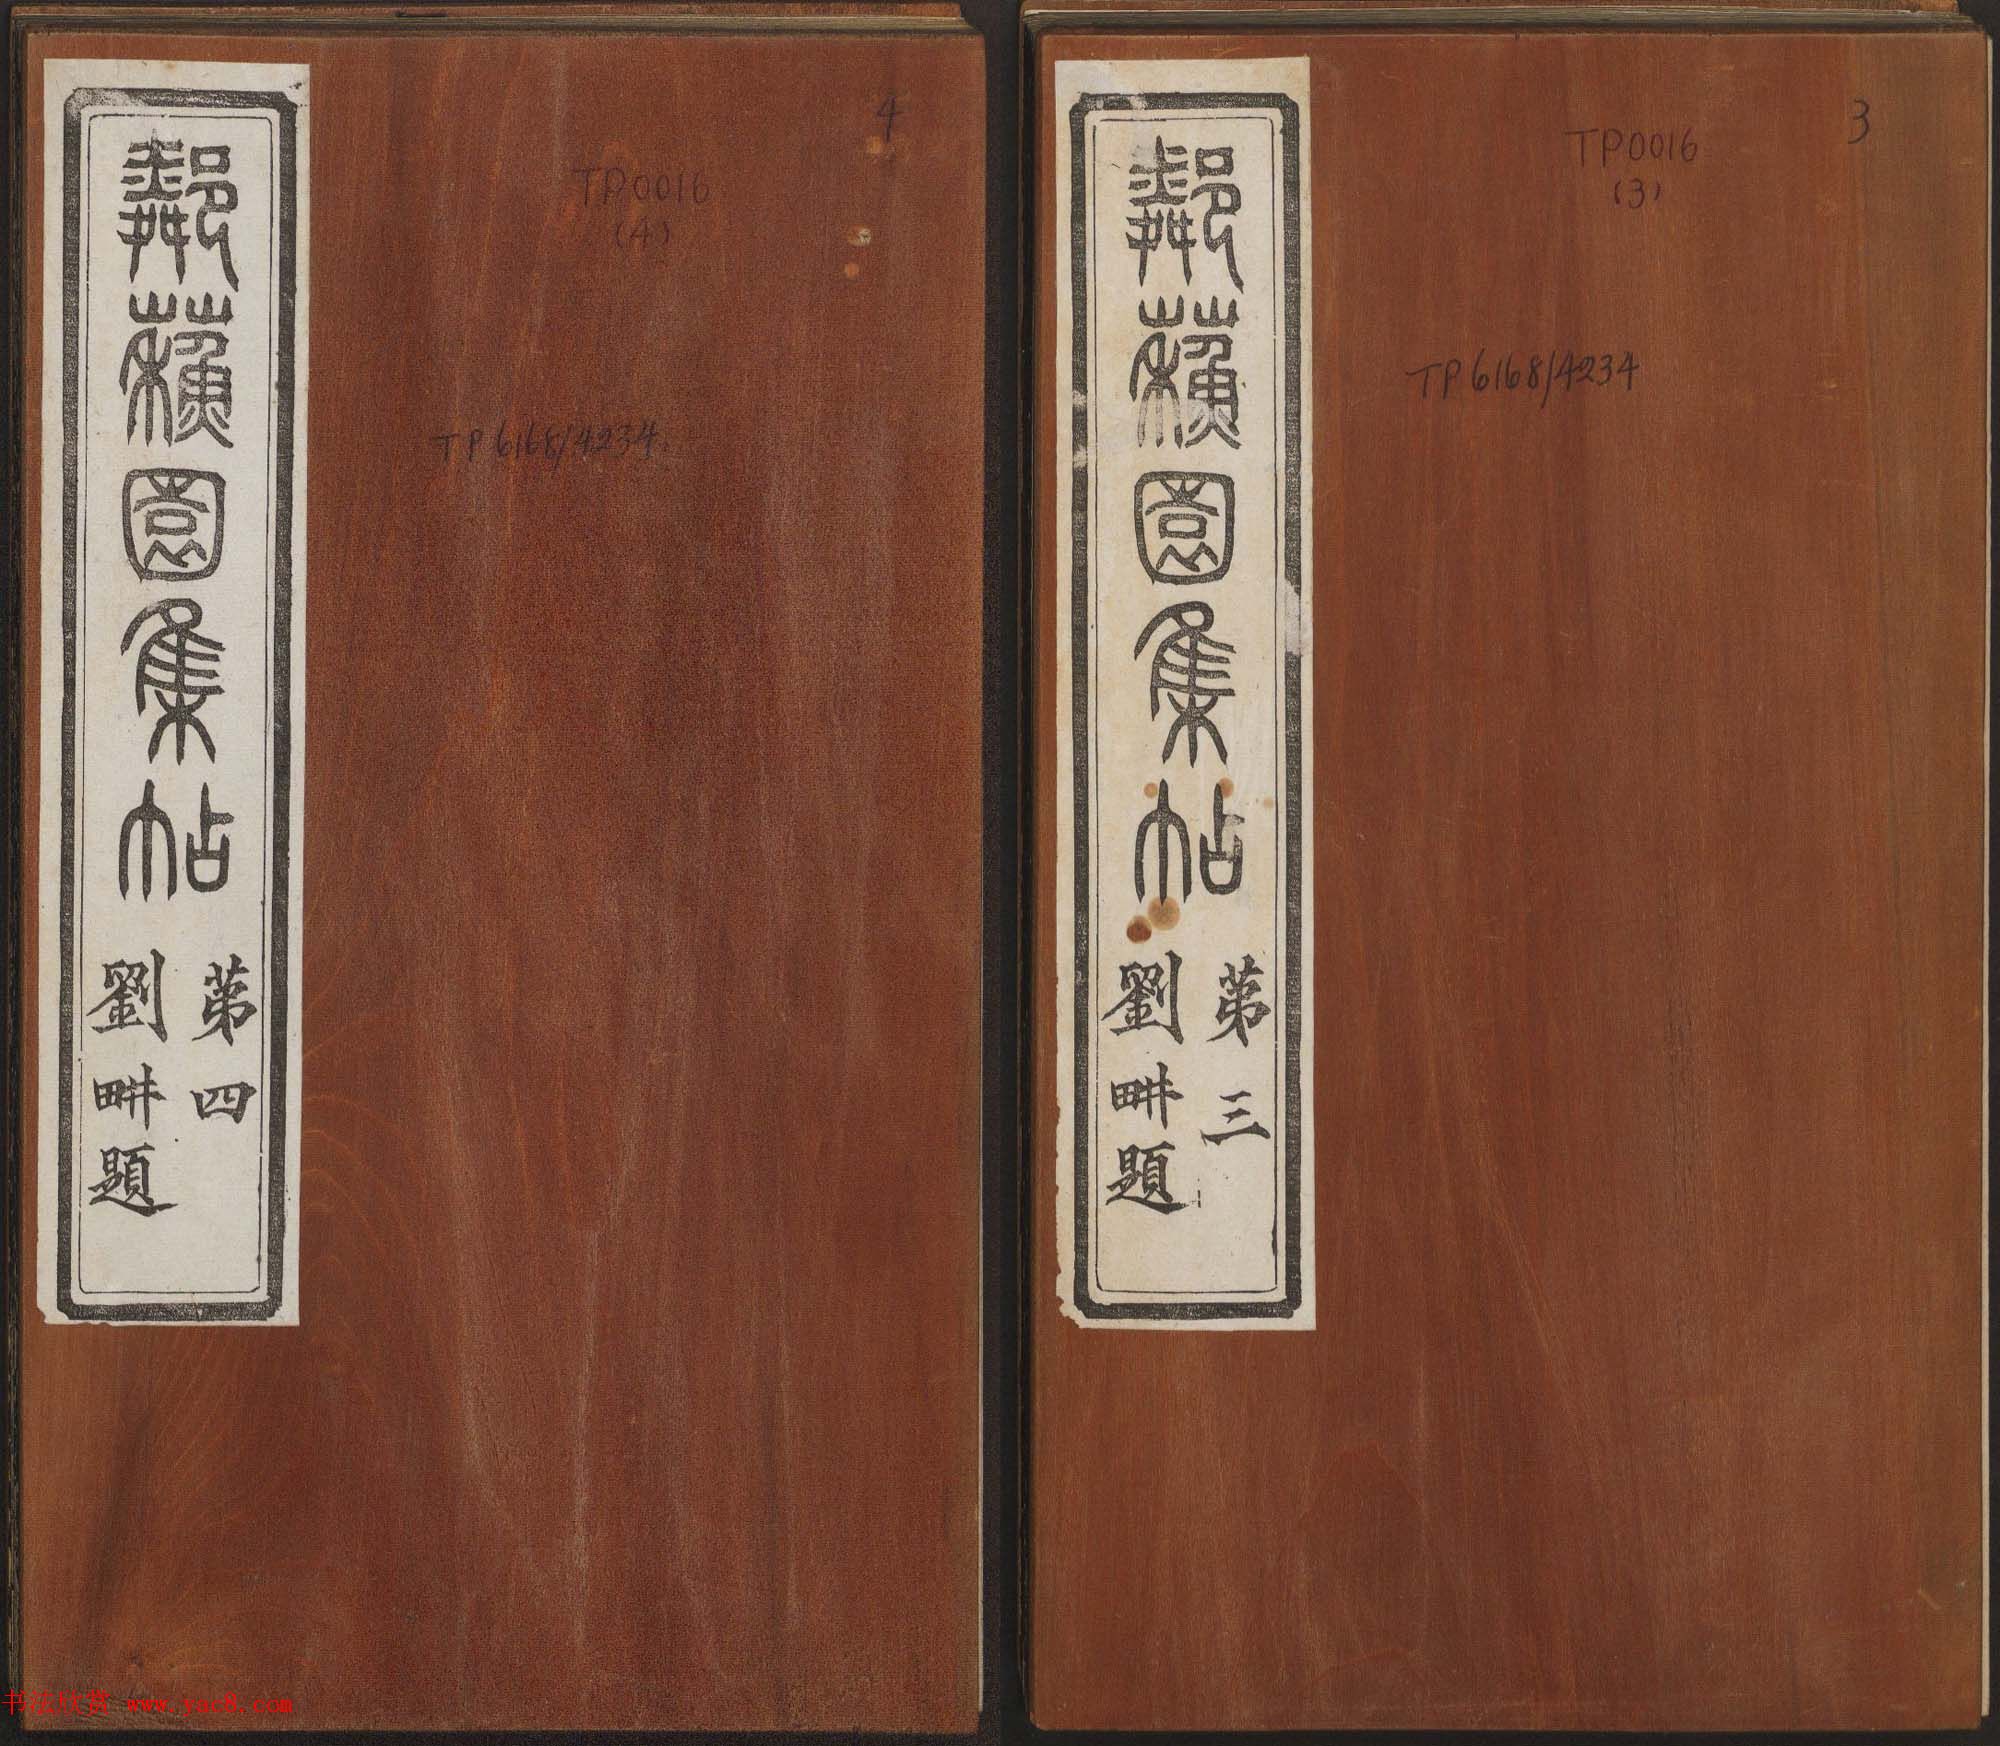 4
TP0016
(4)
TP6168/4234.
鄰蘓園集帖
第四
劉畊題
3
TP0016
(3)
TP6168/4234
鄰蘓園集帖
第三
劉畊題
书法欣赏 www.yac8.com